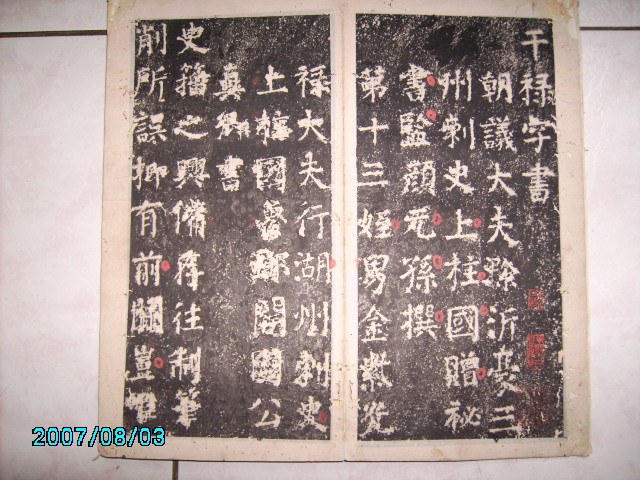 干禄字書
朝議大夫滁沂豪三
州刺史上柱國贈祕
書監顏元孫撰
第十三姪男金紫光
禄大夫行湖州刺史
上柱國魯郡開國公
真卿書
史籀之興備存往制筆
削所誤抑有前聞豈唯
2007/08/03